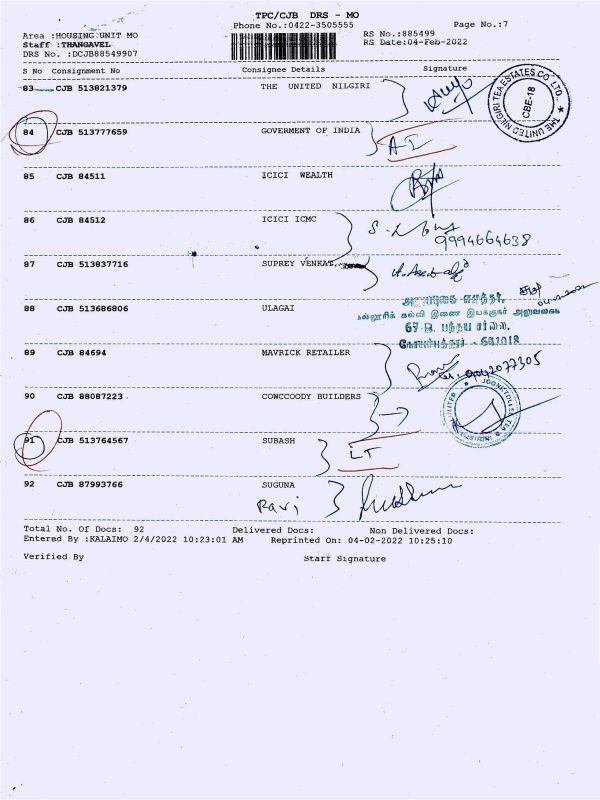 TPC/CJB DRS - MO
Phone No.:0422-3505555
Page No.:7
Area :HOUSING UNIT MO
RS No.:885499
Staff :THANGAVEL
RS Date:04-Feb-2022
DRS No. :DCJB88549907
S No Consignment No Consignee Details Signature
83 CJB 513821379 THE UNITED NILGIRI
THE UNITED NILGIRI TEA ESTATES CO. LTD.
CBE-18
84 CJB 513777659 GOVERMENT OF INDIA
85 CJB 84511 ICICI WEALTH
86 CJB 84512 ICICI ICMC
9994664638
87 CJB 513837716 SUPREY VENKAT
88 CJB 513686806 ULAGAI
கல்லூரிக் கல்வி இணை இயக்குநர் அலுவலகம்
67-B, பந்தய சாலை,
கோயம்புத்தூர் - 641018
89 CJB 84694 MAVRICK RETAILER
9042077305
90 CJB 88087223 COWCCOODY BUILDERS
91 CJB 513764567 SUBASH
LT
92 CJB 87993766 SUGUNA
Ravi
Total No. Of Docs: 92 Delivered Docs: Non Delivered Docs:
Entered By :KALAIMO 2/4/2022 10:23:01 AM Reprinted On: 04-02-2022 10:25:10
Verified By Staff Signature